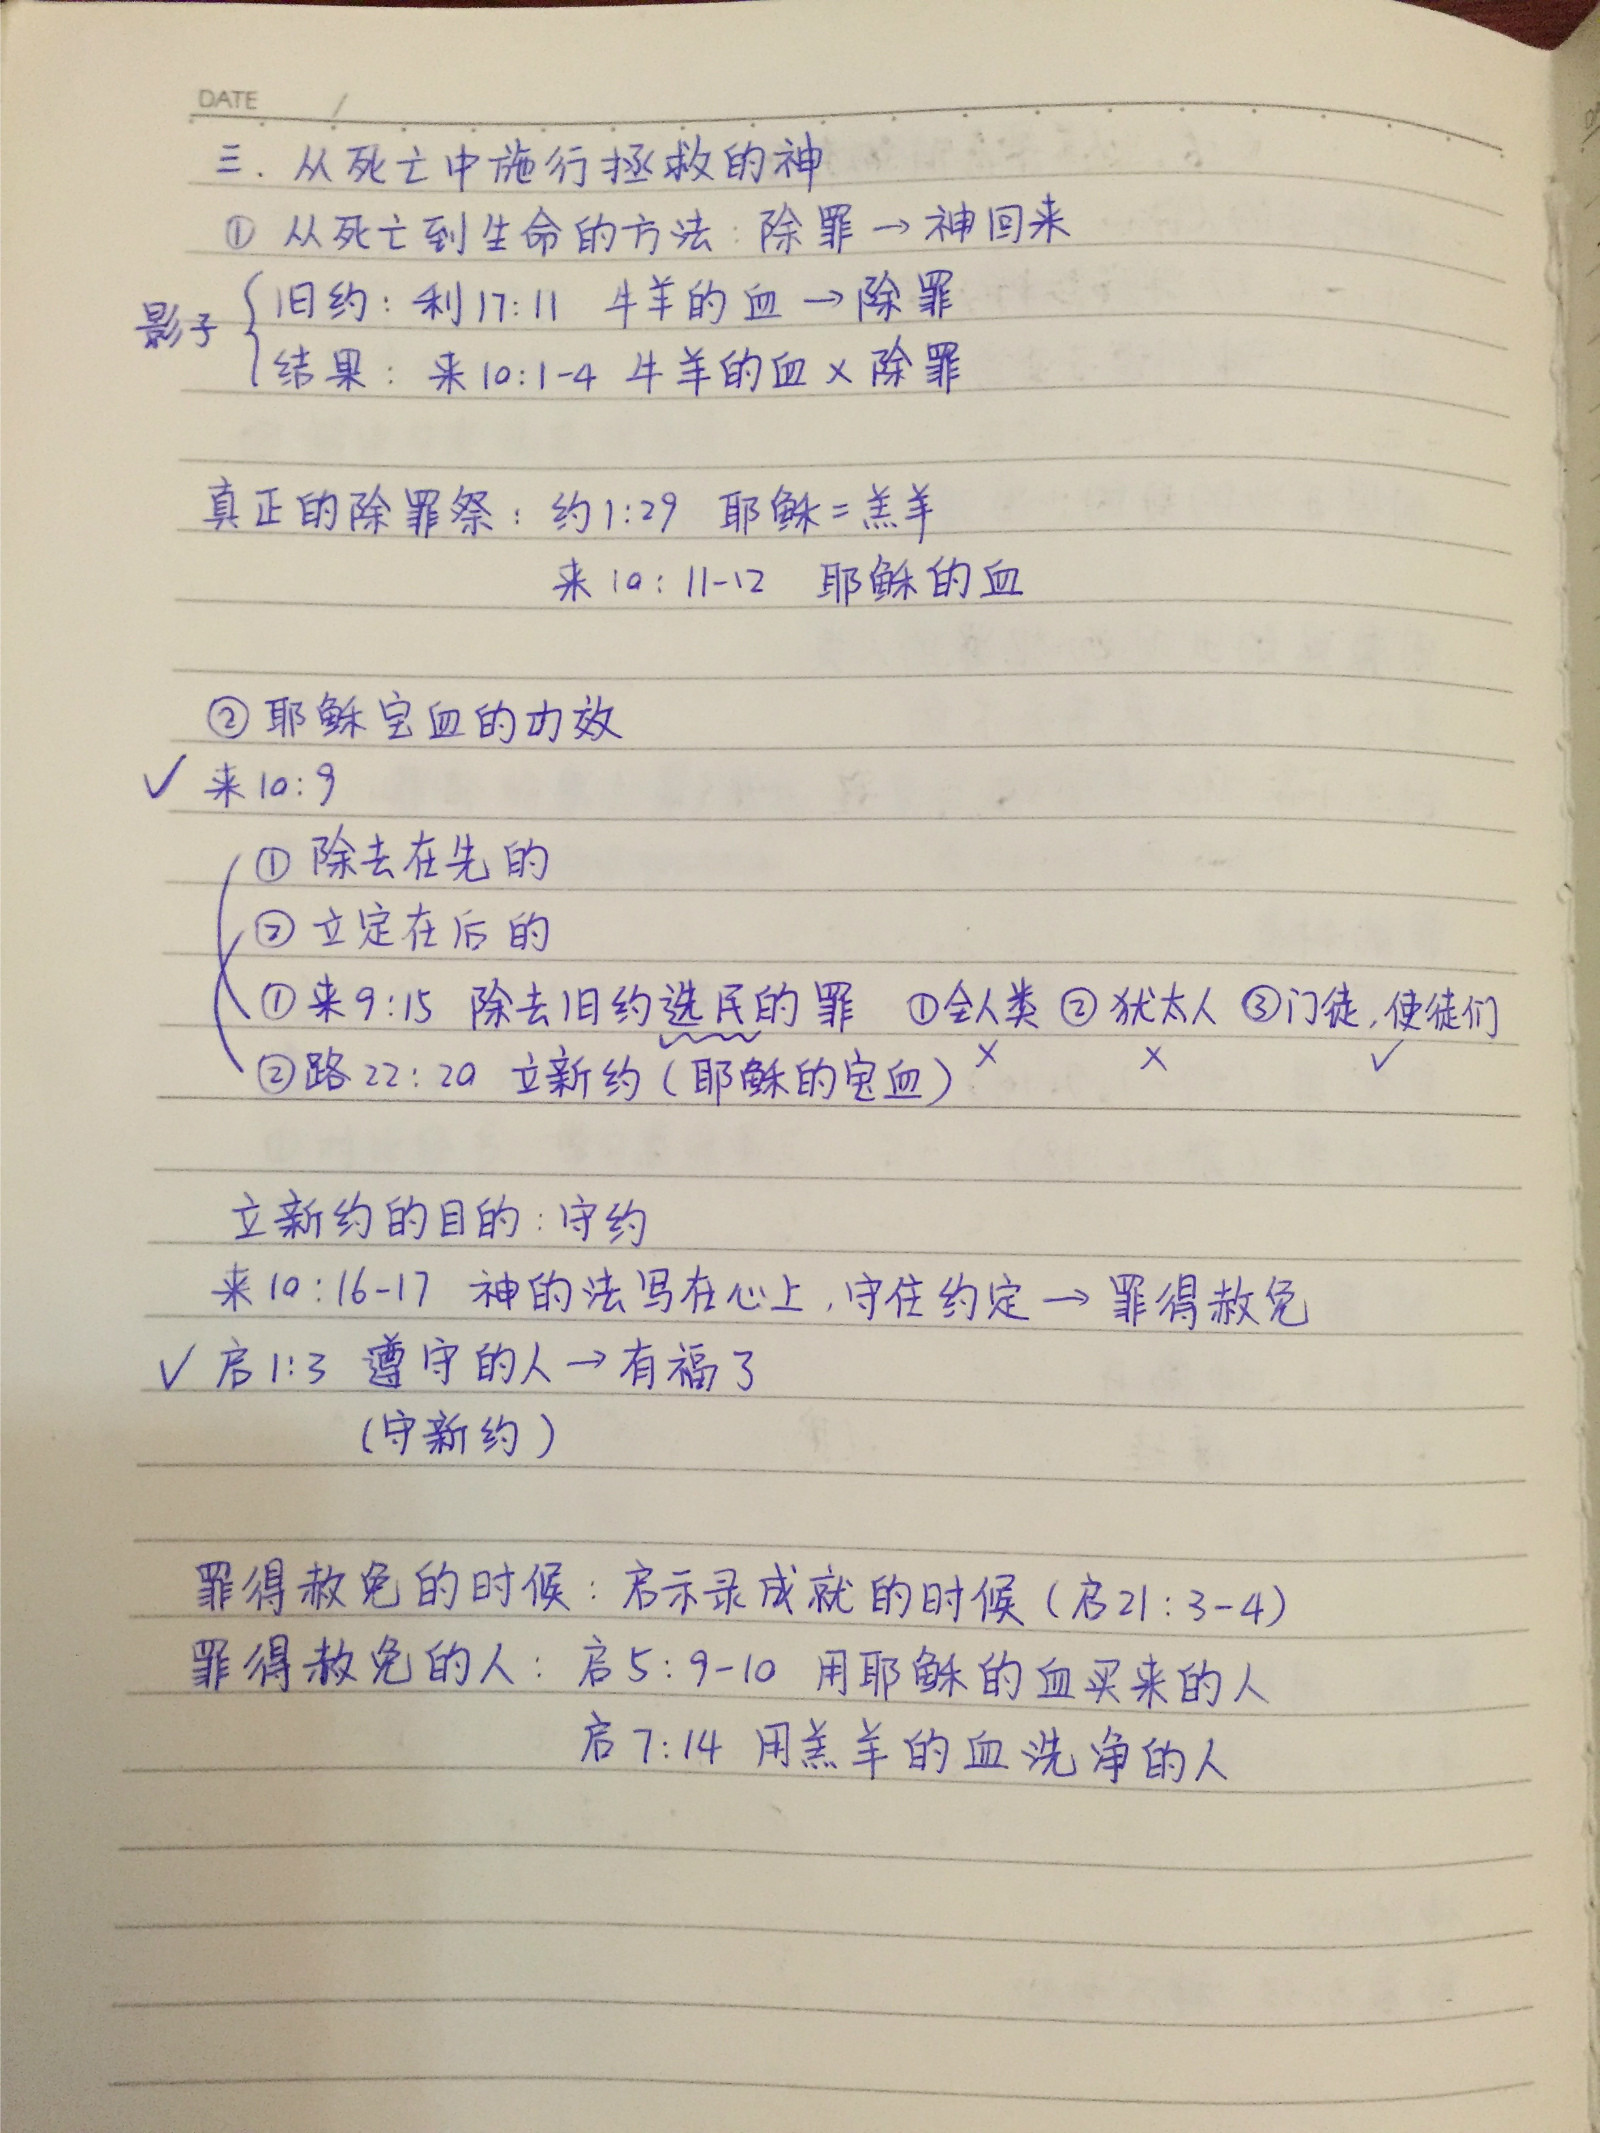 DATE /
三. 从死亡中施行拯救的神
① 从死亡到生命的方法: 除罪→神回来
影子
旧约: 利17:11 牛羊的血→除罪
结果: 来10:1-4 牛羊的血×除罪
真正的除罪祭: 约1:29 耶稣=羔羊
来10:11-12 耶稣的血
② 耶稣宝血的功效
✓ 来10:9
① 除去在先的
② 立定在后的
① 来9:15 除去旧约选民的罪 ①全人类 ②犹太人 ③门徒,使徒们
× × ✓
② 路22:20 立新约(耶稣的宝血)
立新约的目的: 守约
来10:16-17 神的法写在心上,守住约定→罪得赦免
✓ 启1:3 遵守的人→有福了
(守新约)
罪得赦免的时候: 启示录成就的时候(启21:3-4)
罪得赦免的人: 启5:9-10 用耶稣的血买来的人
启7:14 用羔羊的血洗净的人